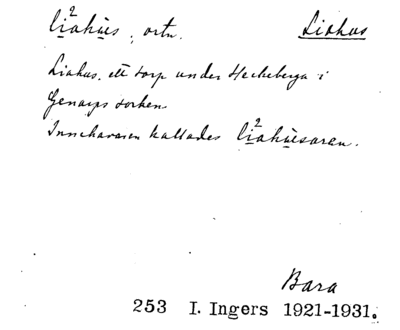 li²ahus, ortn. Liahus
Liahus, ett torp under Heckeberga i
Genarps socken
Innehavaren kallades li²ahusaren.
Bara
253 I. Ingers 1921-1931.